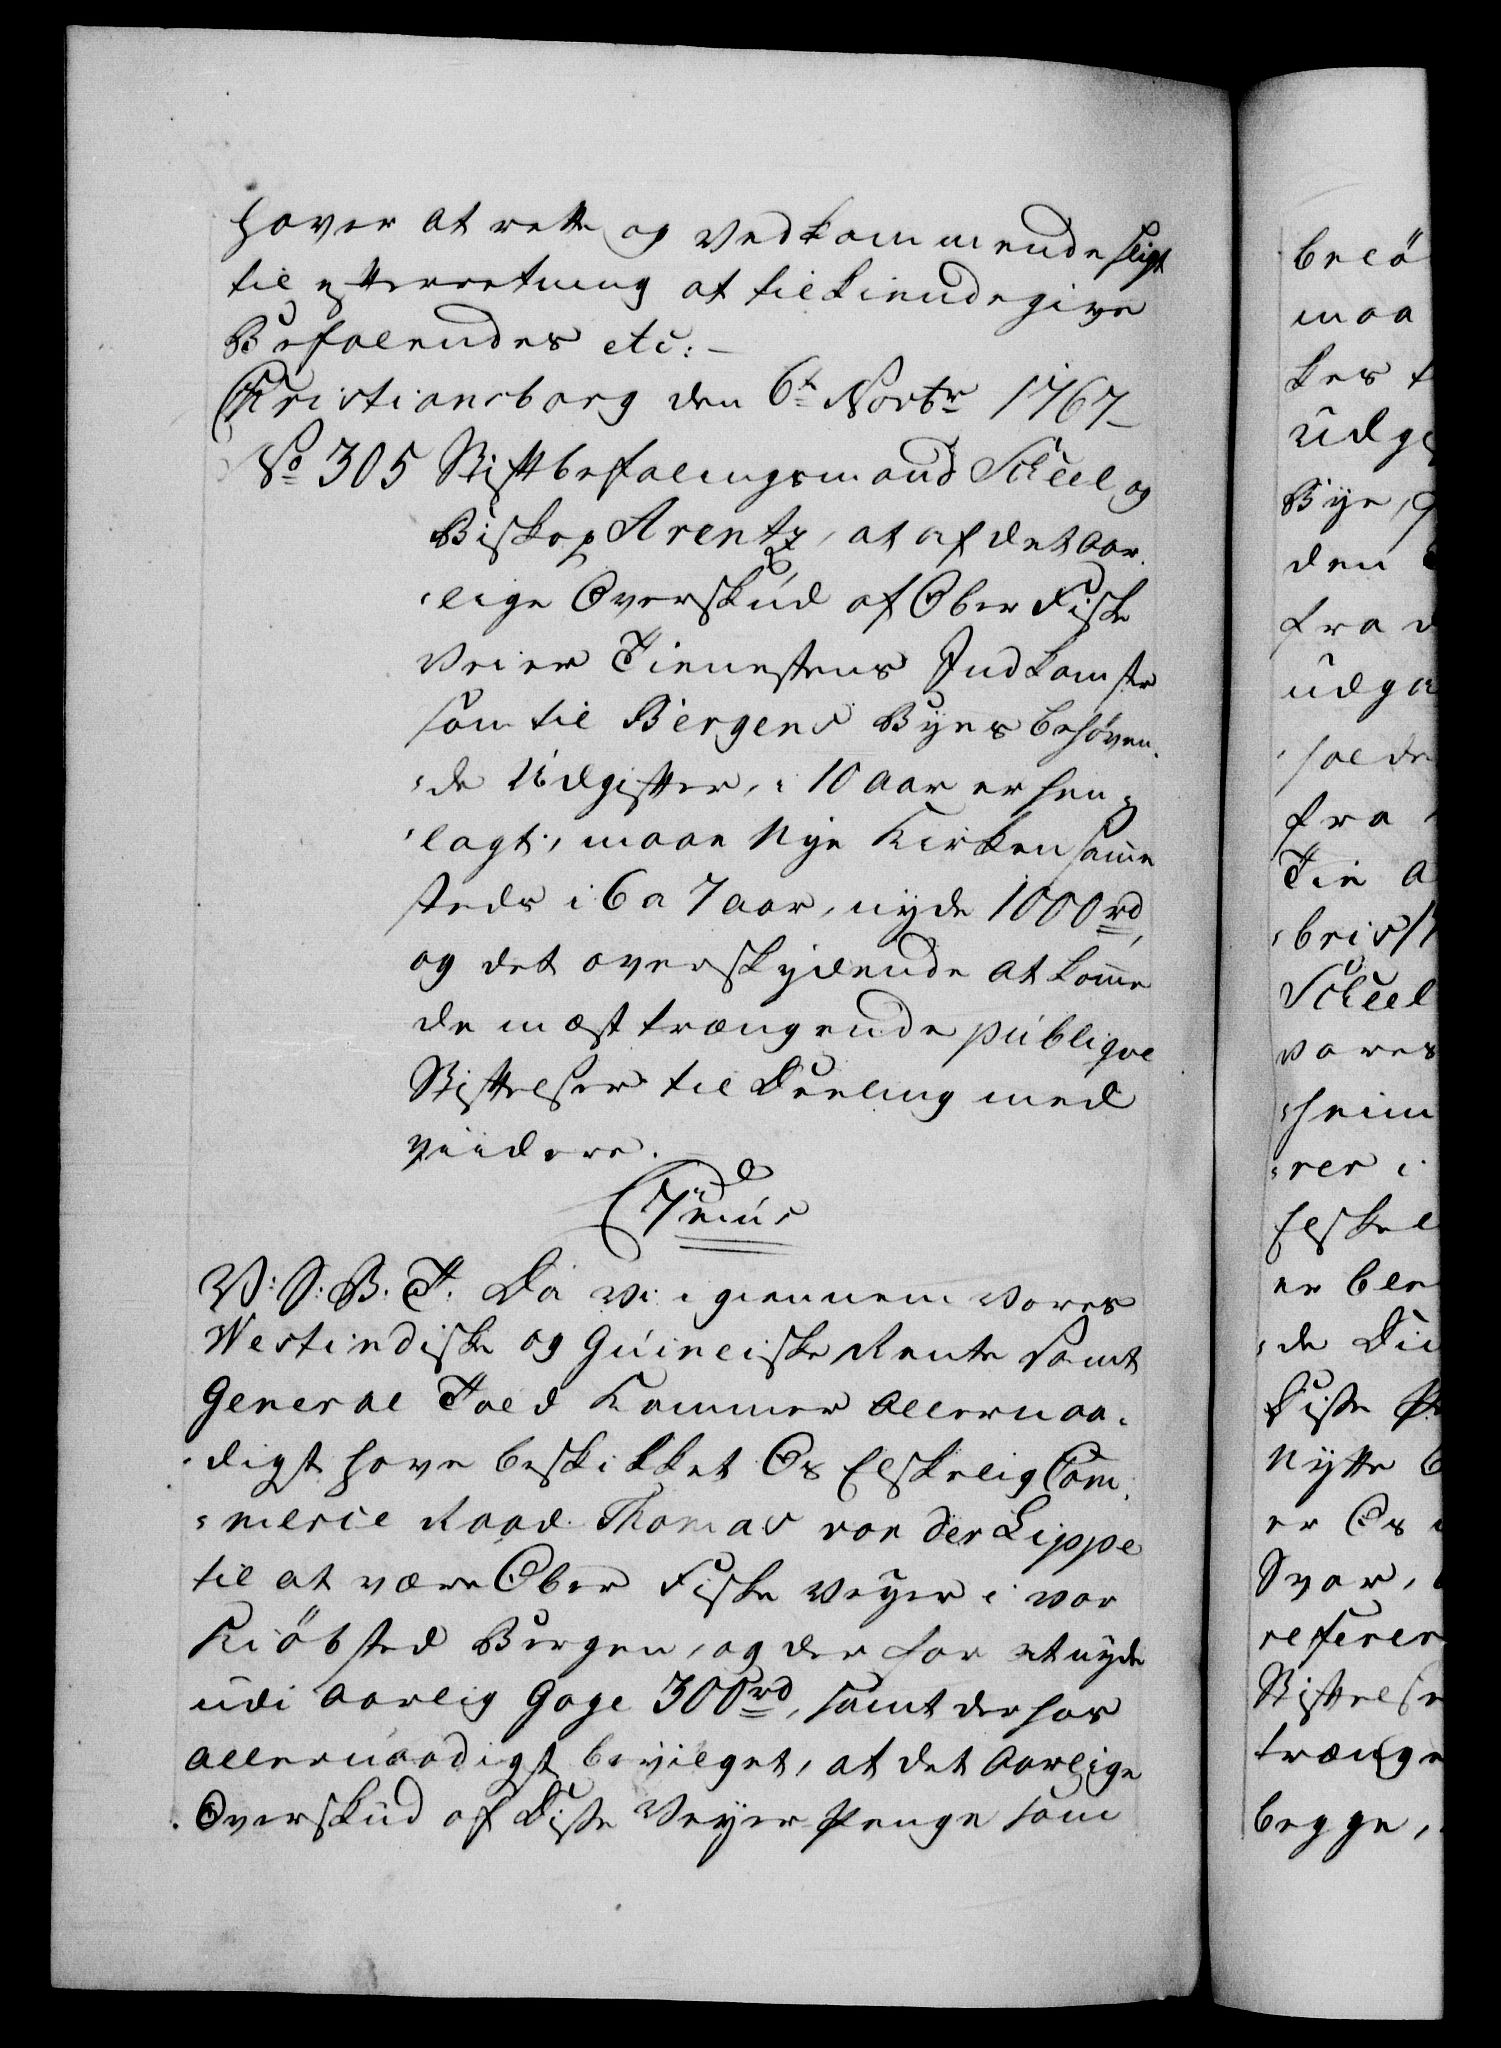 haver at rette og vedkommende sligt
til efterretning at tilkiendegive
Befalendes etc: –
Christiansborg den 6t Novbr 1767 –
No 305 Stiftbefalingsmand Scheel og
Biskop Arentz, at af det Aar-
lige Overskud af Ober Fiske
Veier Tienestens Indkomster
som til Bergens Byes behøven-
de Udgifter, i 10 Aar er hen-
lagt, maae Nye Kirken samme
steds i 6 a 7 aar, nyde 1000 rd,
og det overskydende at komme
de mæst trængende publiqve
Stiftelser til Deeling med
viidere.
C 7mus
V: S: B. T. Da Vi igiennem Vores
Westindiske og Guineiske Rente samt
General Told Kammer Allernaa-
digst have beskikket Os Elskelig Com-
mercie Raad Thomas von der Lippe
til at være Ober Fiske Veyer i vor
Kiöbsted Bergen, og der for at nyde
udi Aarlig Gage 300 rd, samt derhos
allernaadigst bevilget, at det Aarlige
Overskud af Diste Veyer Penge som
beø
maa
kes
Udge
Bye,
den
fra d
udga
holde
fra
Tie
bris
Scheel
vores
heim
rer i
Elskel
er ble
de
Diste
Nytte
er Os
Svar,
referer
Stiftelse
trænge
begge,